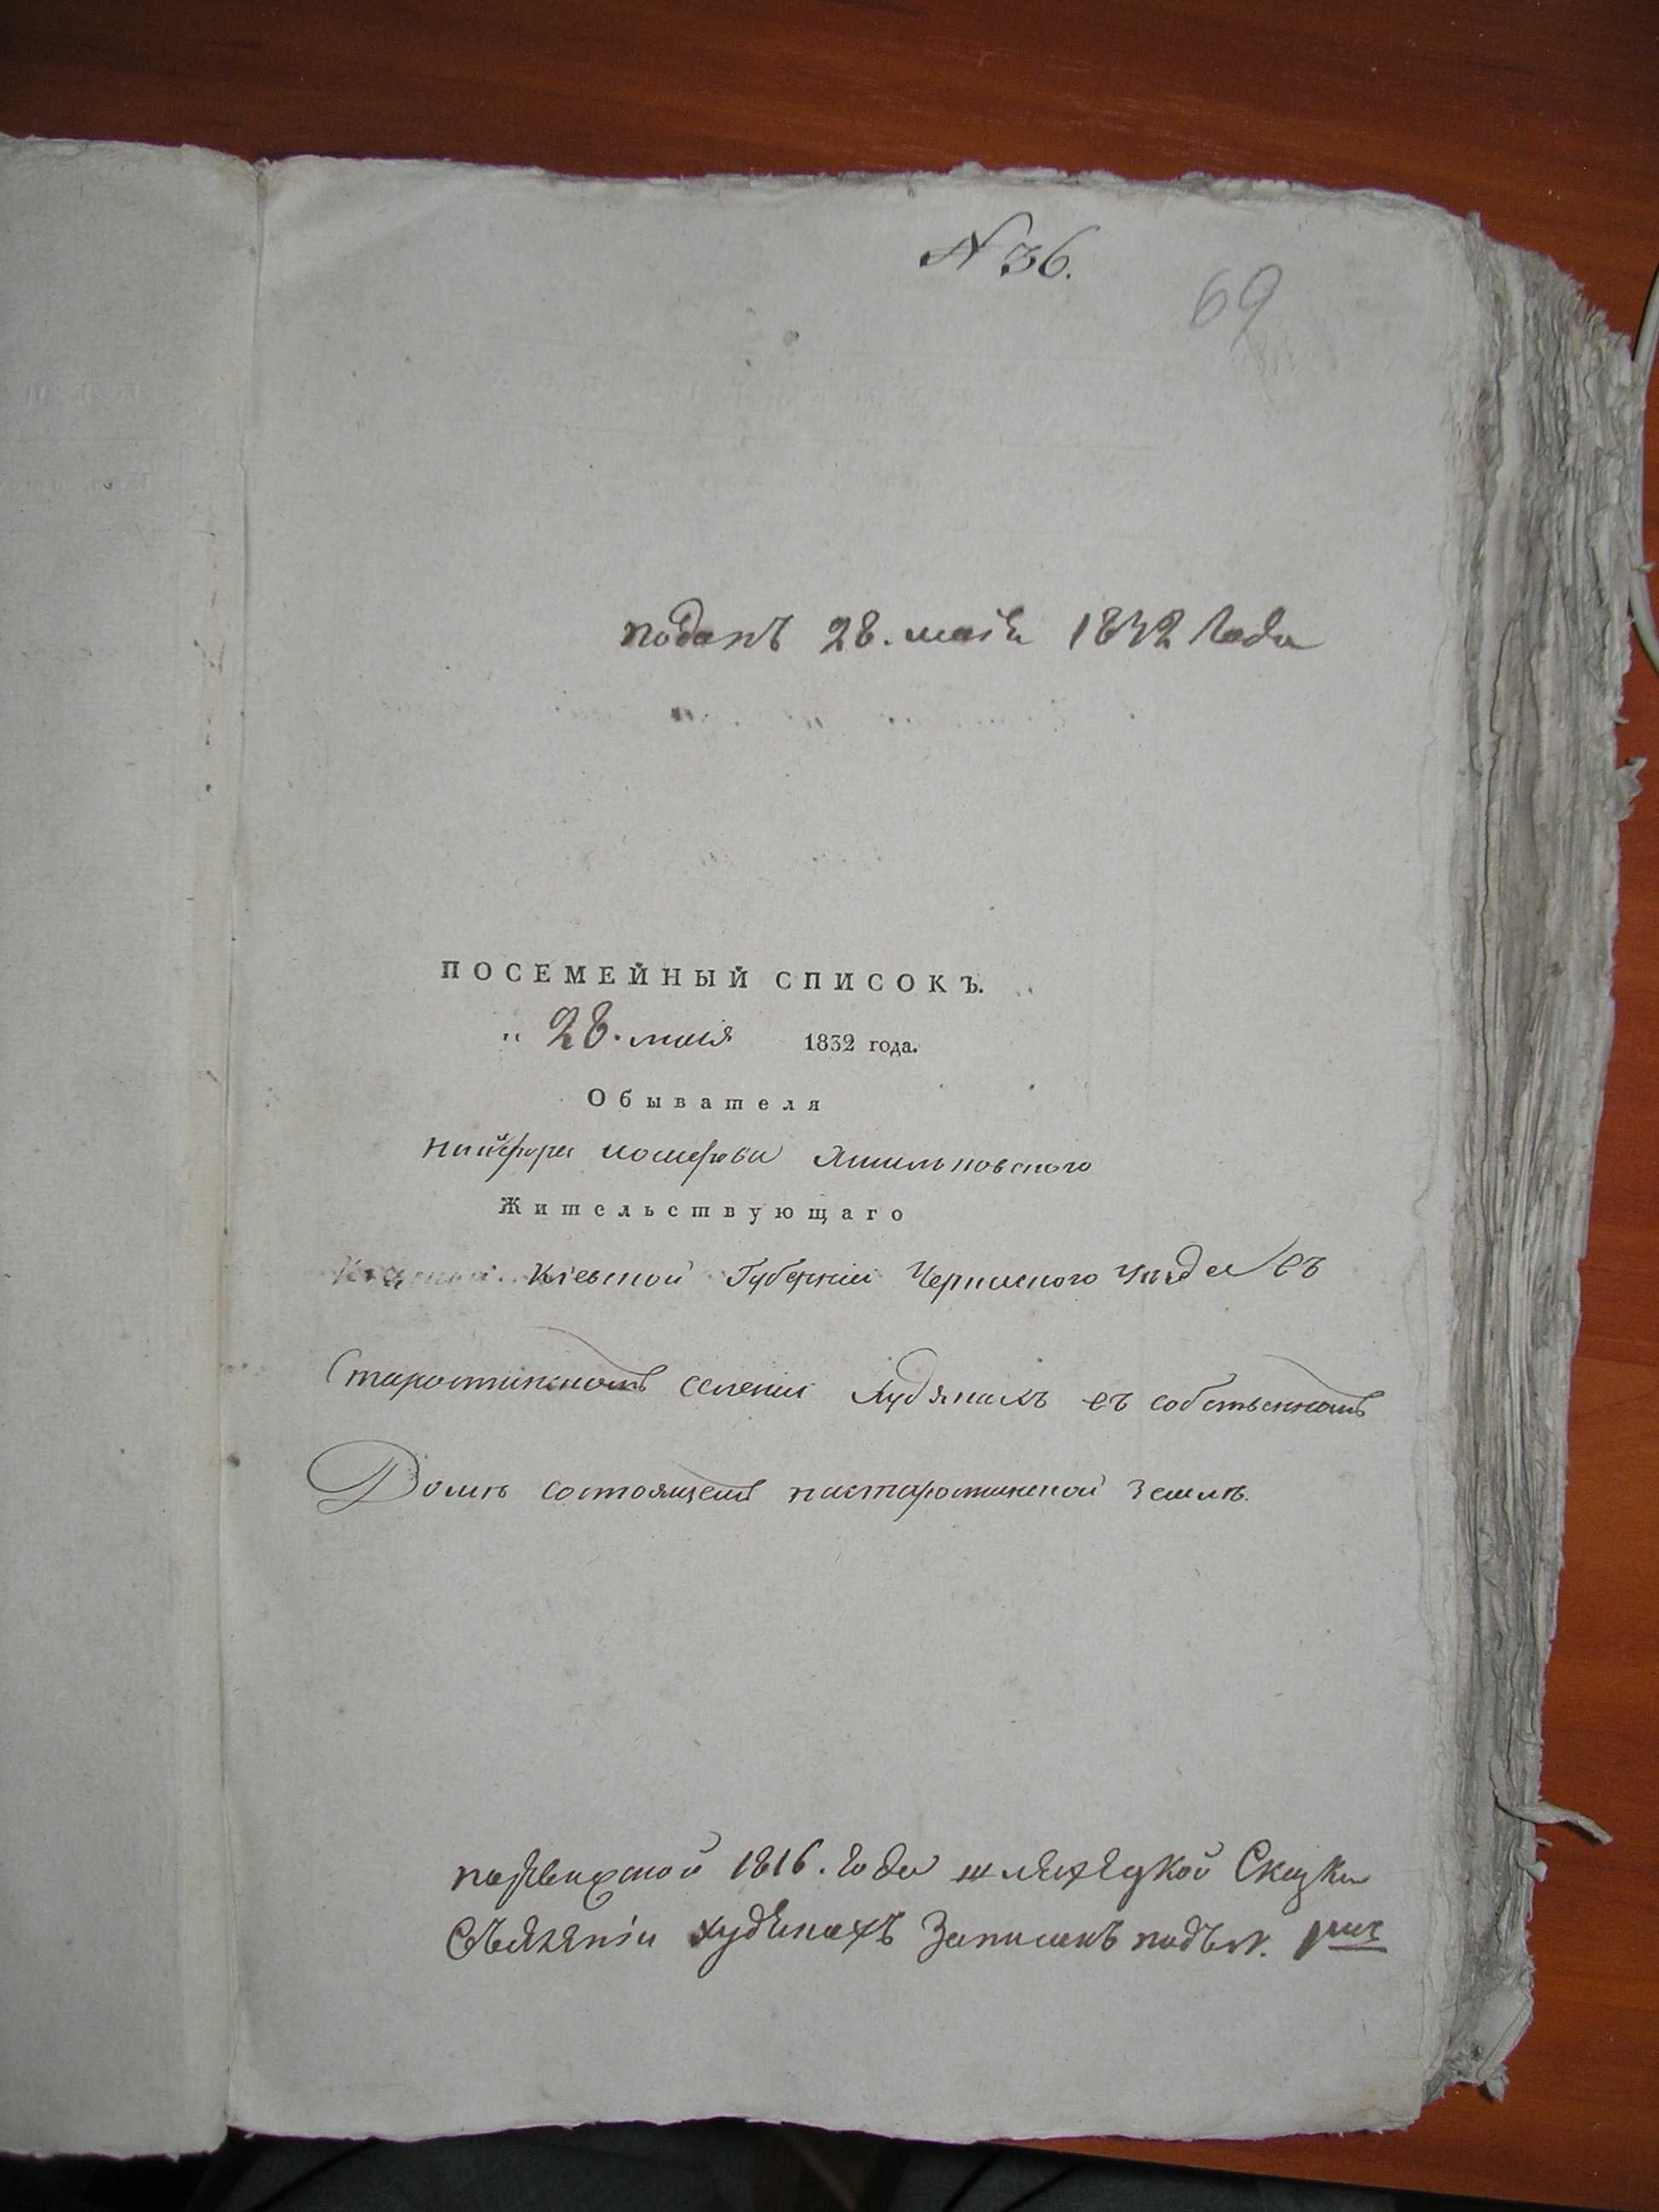 N 36.
69
поданъ 28. маія 1832 Года
ПОСЕМЕЙНЫЙ СПИСОКЪ.
„ 28. маія 1832 года.
Обывателя
Никифора Иосифова
Жительствующаго
Кіевской Губерніи Черкаского уезда Въ
Старостинскомъ селении Худякахъ въ собственномъ
Доме состоящемъ настаростинской земле.
1816. Года шляхецкой Скаски
Худякахъ Записанъ подъ N.